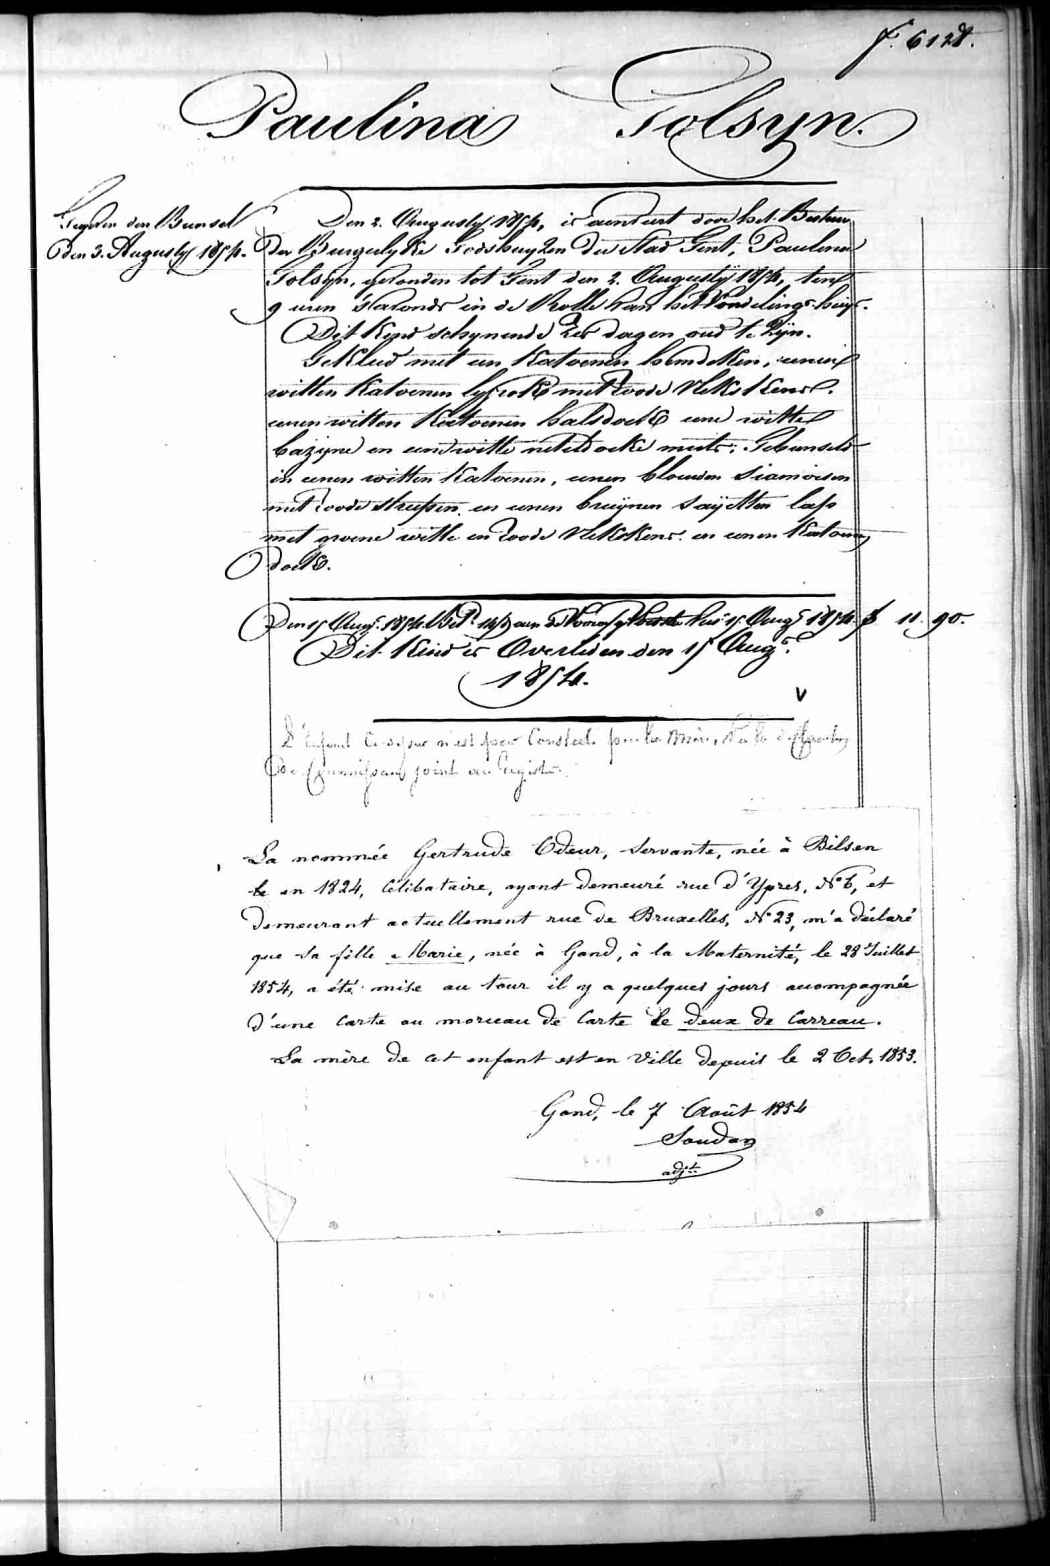 f. 612
Paulina Tolsyn.
den Bunsel
den 3. Augusty 1854.
Den 2. Augusty 1854, is aenveirt door het Bestuer
der Burgerlyke Godshuyzen der Stad Gent, Paulina
Tolsyn, gevonden tot Gent den 2. Augusty 1854, ten
9 uren s'avonds in de Rolle van het Vondelings-huys.
Dit Kind schynende zes dagen oud te zyn.
Gekleed met een Katoenen hemdeken, eenen
witten Katoenen lyfrok met roode vlekskens.
eenen witten Katoenen halsdoek eene witte
bazyne en eene witte neteldoeke muts; Gebunseld
in eenen witten Katoenen, eenen blauwen siamoisen
met roode streepen, en eenen bruynen sayetten lap
met groene witte en roode vlekskens. en eenen Katoenen
doek.
Den 15 Augt. 1854 aen de 15 Augt. 1854. f 11. 90.
Dit Kind is Overleden den 15 Augt.
1854.
V
L'Enfant n'est pas par la Mère,
joint au Registre.
La nommée Gertrude Odeur, servante, née à Bilsen
le en 1824, célibataire, ayant demeuré rue d'Ypres, N° 6, et
demeurant actuellement rue de Bruxelles, N° 23, m'a déclaré
que sa fille Marie, née à Gand, à la Maternité, le 28 Juillet
1854, a été mise au tour il y a quelques jours accompagnée
d'une carte ou morceau de carte le deux de carreau.
La mère de cet enfant est en ville depuis le 2 Oct. 1853.
Gand, le 7 Août 1854
Soudan
adjt.